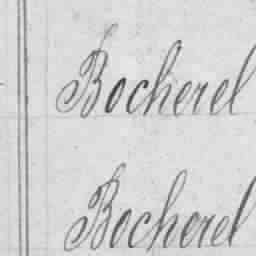 Bocherel
Bocherel